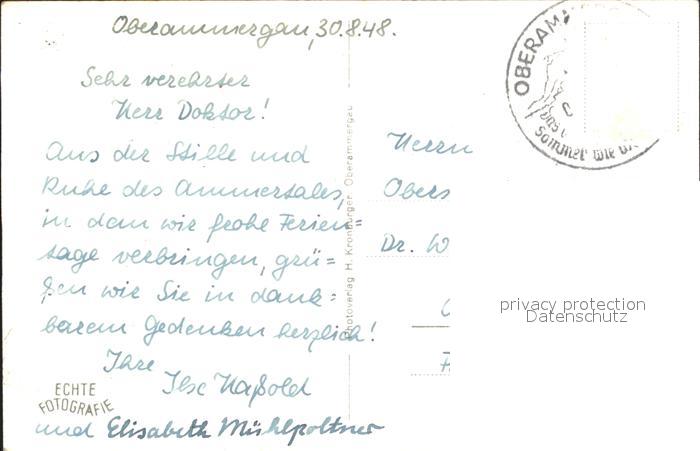 Oberammergau, 30.8.48.
Sehr verehrter
Herr Doktor!
Aus der Stille und
Ruhe des Ammertales,
in dem wir frohe Ferien=
tage verbringen, grü=
ßen wir Sie in dank=
barem Gedenken herzlich!
Ihre
Ilse Haßold
und Elisabeth Mühlpoltner
ECHTE
FOTOGRAFIE
Photoverlag H. Kronburger, Oberammergau
Herrn
Obers
Dr. W
OBERAMM
Sommer wie
privacy protection
Datenschutz